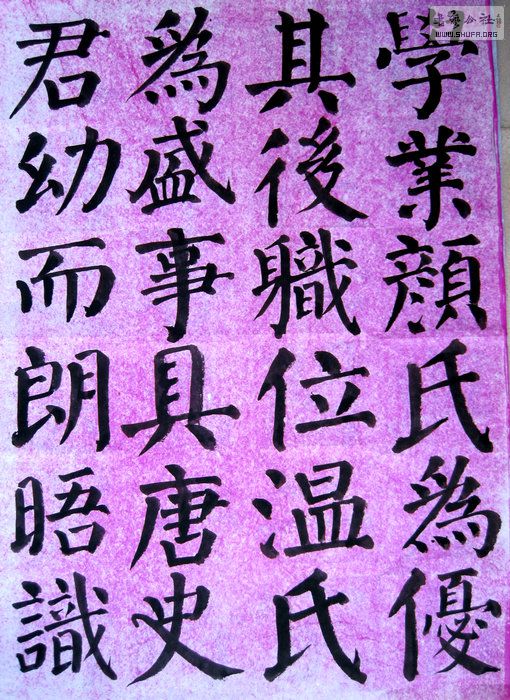 學業顔氏為優
其後職位温氏
為盛事具唐史
君幼而朗晤識
WWW.SHUFA.ORG